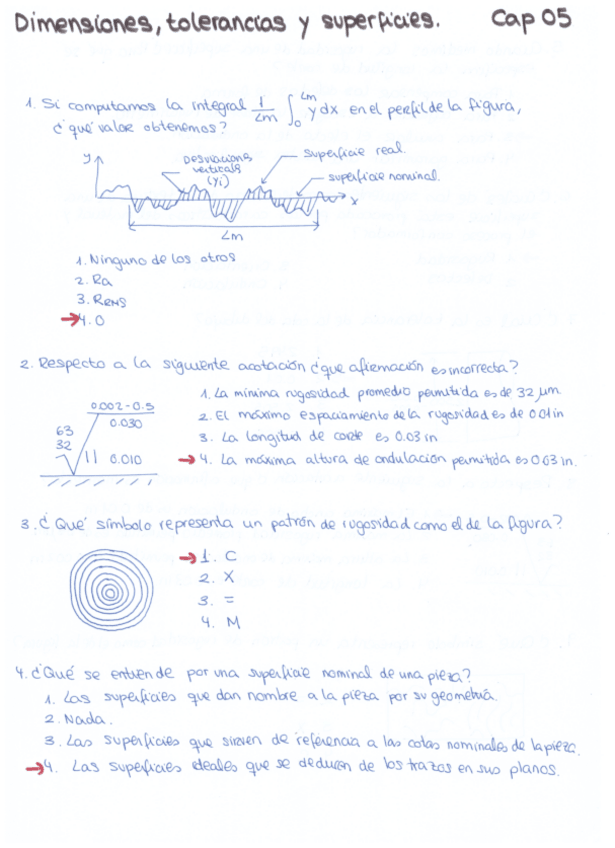 Dimensiones, tolerancias y superficies. Cap 05
1. Si computamos la integral 1/Lm ∫₀^Lm y dx en el perfil de la figura,
¿qué valor obtenemos?
y
Desviaciones
verticales
(yi)
superficie real.
superficie nominal.
x
Lm
1. Ninguno de los otros
2. Ra
3. RRMS
→4. 0
2. Respecto a la siguiente acotación ¿que afirmación es incorrecta?
0.002-0.5
63
32
0.030
|| 0.010
1. La mínima rugosidad promedio permitida es de 32 µm.
2. El máximo espaciamiento de la rugosidad es de 0.01 in
3. La longitud de corte es 0.03 in
→4. La máxima altura de ondulación permitida es 0.63 in.
3. ¿Qué símbolo representa un patrón de rugosidad como el de la figura?
→1. C
2. X
3. =
4. M
4. ¿Qué se entiende por una superficie nominal de una pieza?
1. Las superficies que dan nombre a la pieza por su geometría.
2. Nada.
3. Las superficies que sirven de referencia a las cotas nominales de la pieza.
→4. Las superficies ideales que se deducen de los trazos en sus planos.